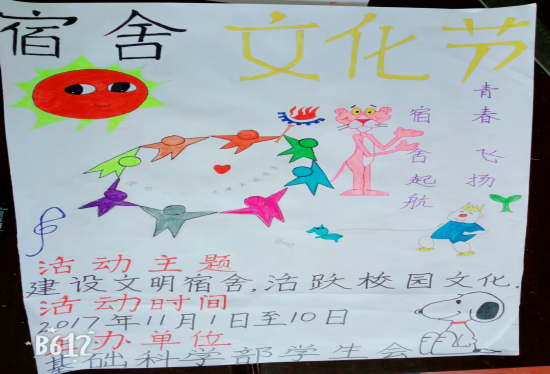 宿舍 文化节
青春飞扬
宿舍起航
活动主题
建设文明宿舍,活跃校园文化.
活动时间
2017年11月1日至10日
主办单位
基础科学部学生会
B612